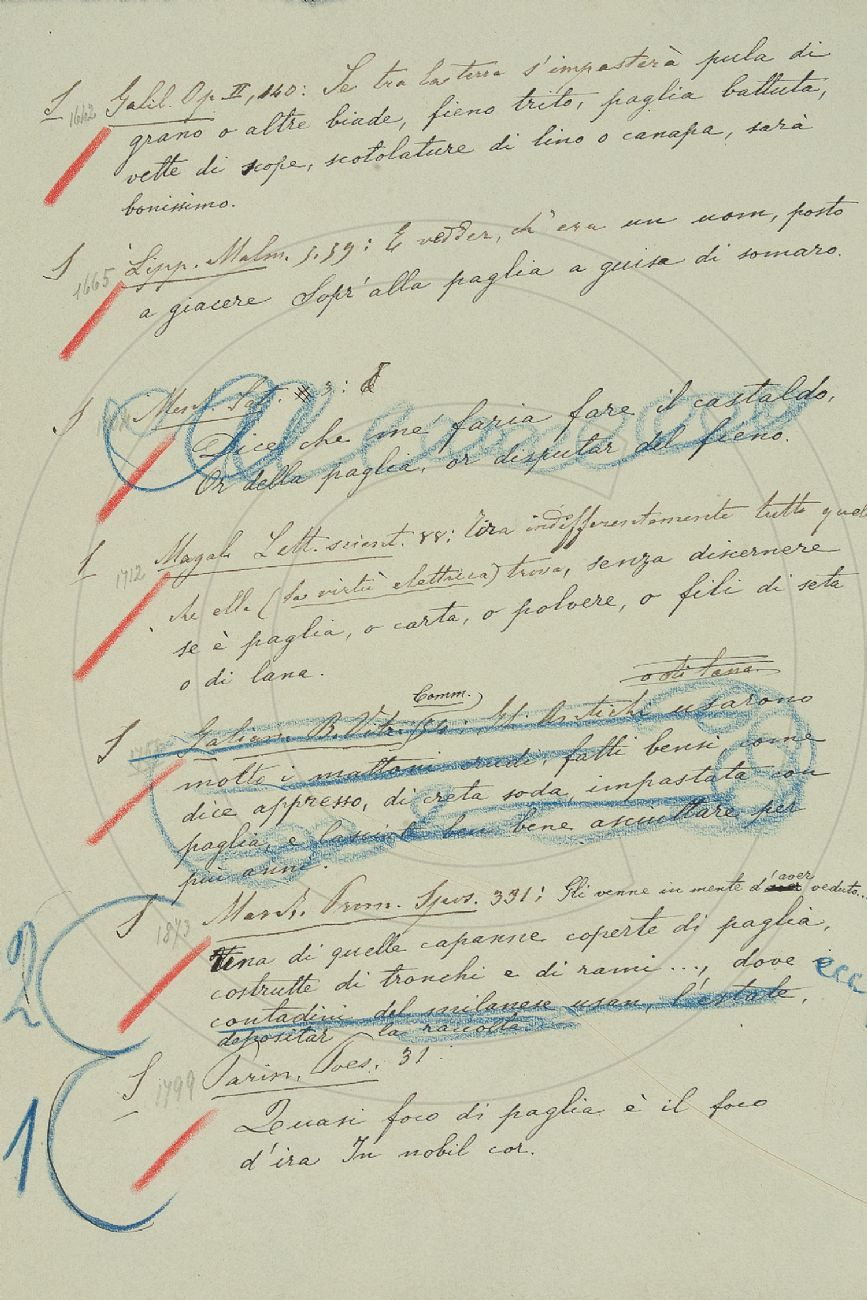 S 1642 Galil. Op. IV, 140: Se tra la terra s'impasterà pula di
grano o altre biade, fieno trito, paglia battuta,
vette di scope, scotolature di lino o canapa, sarà
bonissimo.
S 1665 Lipp. Malm. 5.59: E vedder, ch'era un uom, posto
a giacere Sopr'alla paglia a guisa di somaro.
S Menz. Sat. 3:
Dice che me' faria fare il castaldo,
Or della paglia, or disputar del fieno.
S 1712 Magal. Lett. scient. 88: Tira indifferentemente tutto quel
che ella (la virtù elettrica) trova, senza discernere
se è paglia, o carta, o polvere, o fili di seta
o di lana.
o di lana.
Comm.
S Galian. B. Vitr. Gli Antichi usarono
molto i mattoni crudi, fatti bensì, come
dice appresso, di creta soda, impastata con
paglia, e lasciati ben bene asciuttare per
più anni.
2 S 1873 Manz. Prom. Spos. 331: Gli venne in mente d'aver veduto...
una di quelle capanne coperte di paglia,
costrutte di tronchi e di rami..., dove i ecc
contadini del milanese usan, l'estate,
depositar la raccolta
1 S 1799 Parin. Poes. 31:
Quasi foco di paglia è il foco
d'ira In nobil cor.